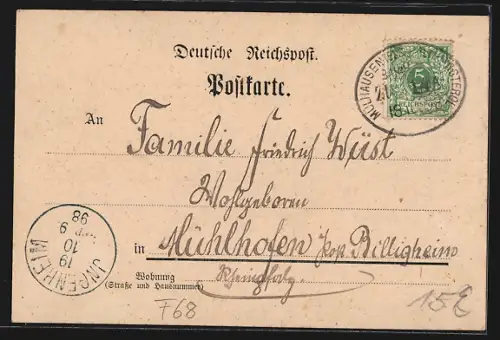 Deutsche Reichspost.
Postkarte.
An
Familie Friedrich Wüst
Wohlgeboren
in Mühlhofen Post Billigheim
Rheinpfalz
Wohnung
(Straße und Hausnummer)
5
REICHSPOST
MÜLHAUSEN
INGENHEIM
19
10
9
98
F68
15E